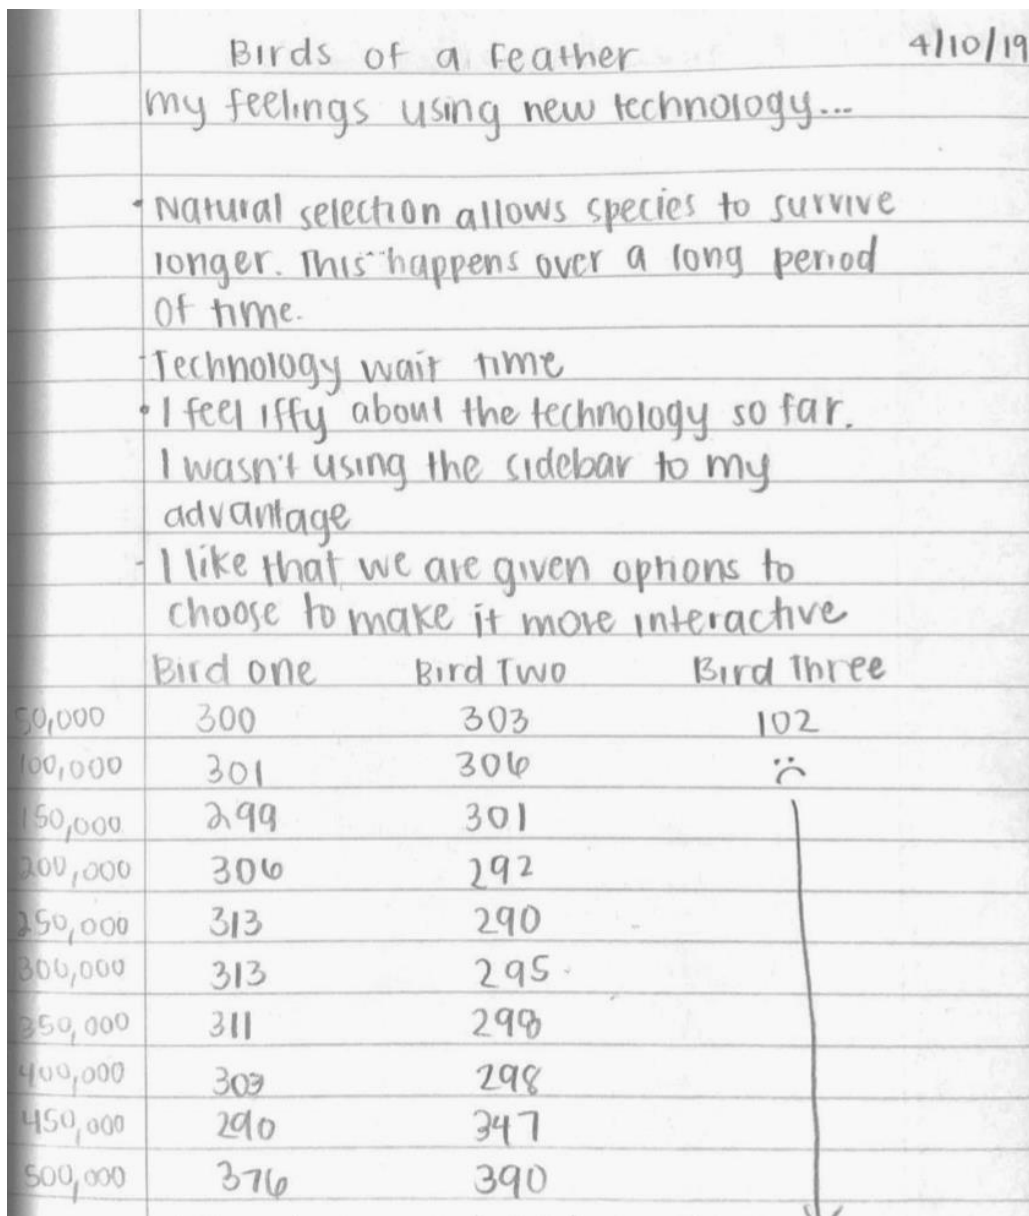 Birds of a Feather 4/10/19
my feelings using new technology...
• Natural selection allows species to survive
longer. This happens over a long period
of time.
- Technology wait time
• I feel iffy about the technology so far.
I wasn't using the sidebar to my
advantage
- I like that we are given options to
choose to make it more interactive
Bird one Bird Two Bird Three
50,000 300 303 102
100,000 301 306 :(
150,000 299 301
200,000 306 292
250,000 313 290
300,000 313 295
350,000 311 298
400,000 303 298
450,000 290 347
500,000 376 390